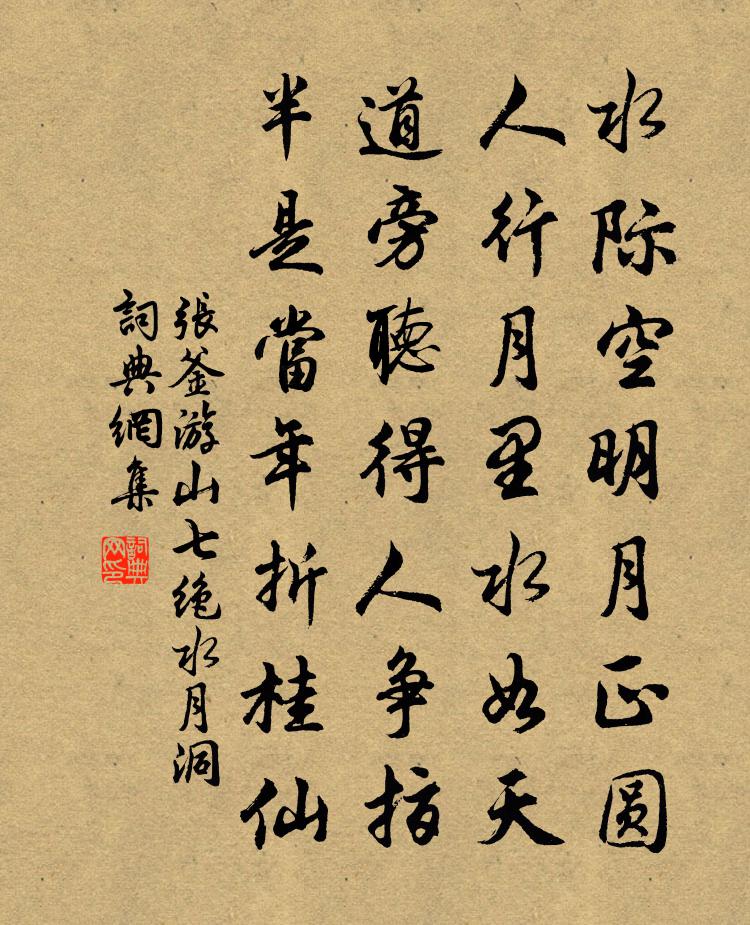 水际空明月正圆
人行月里水如天
道旁聽得人争指
半是當年折桂仙
張釜游山七绝水月洞
詞典網集
詞典网印